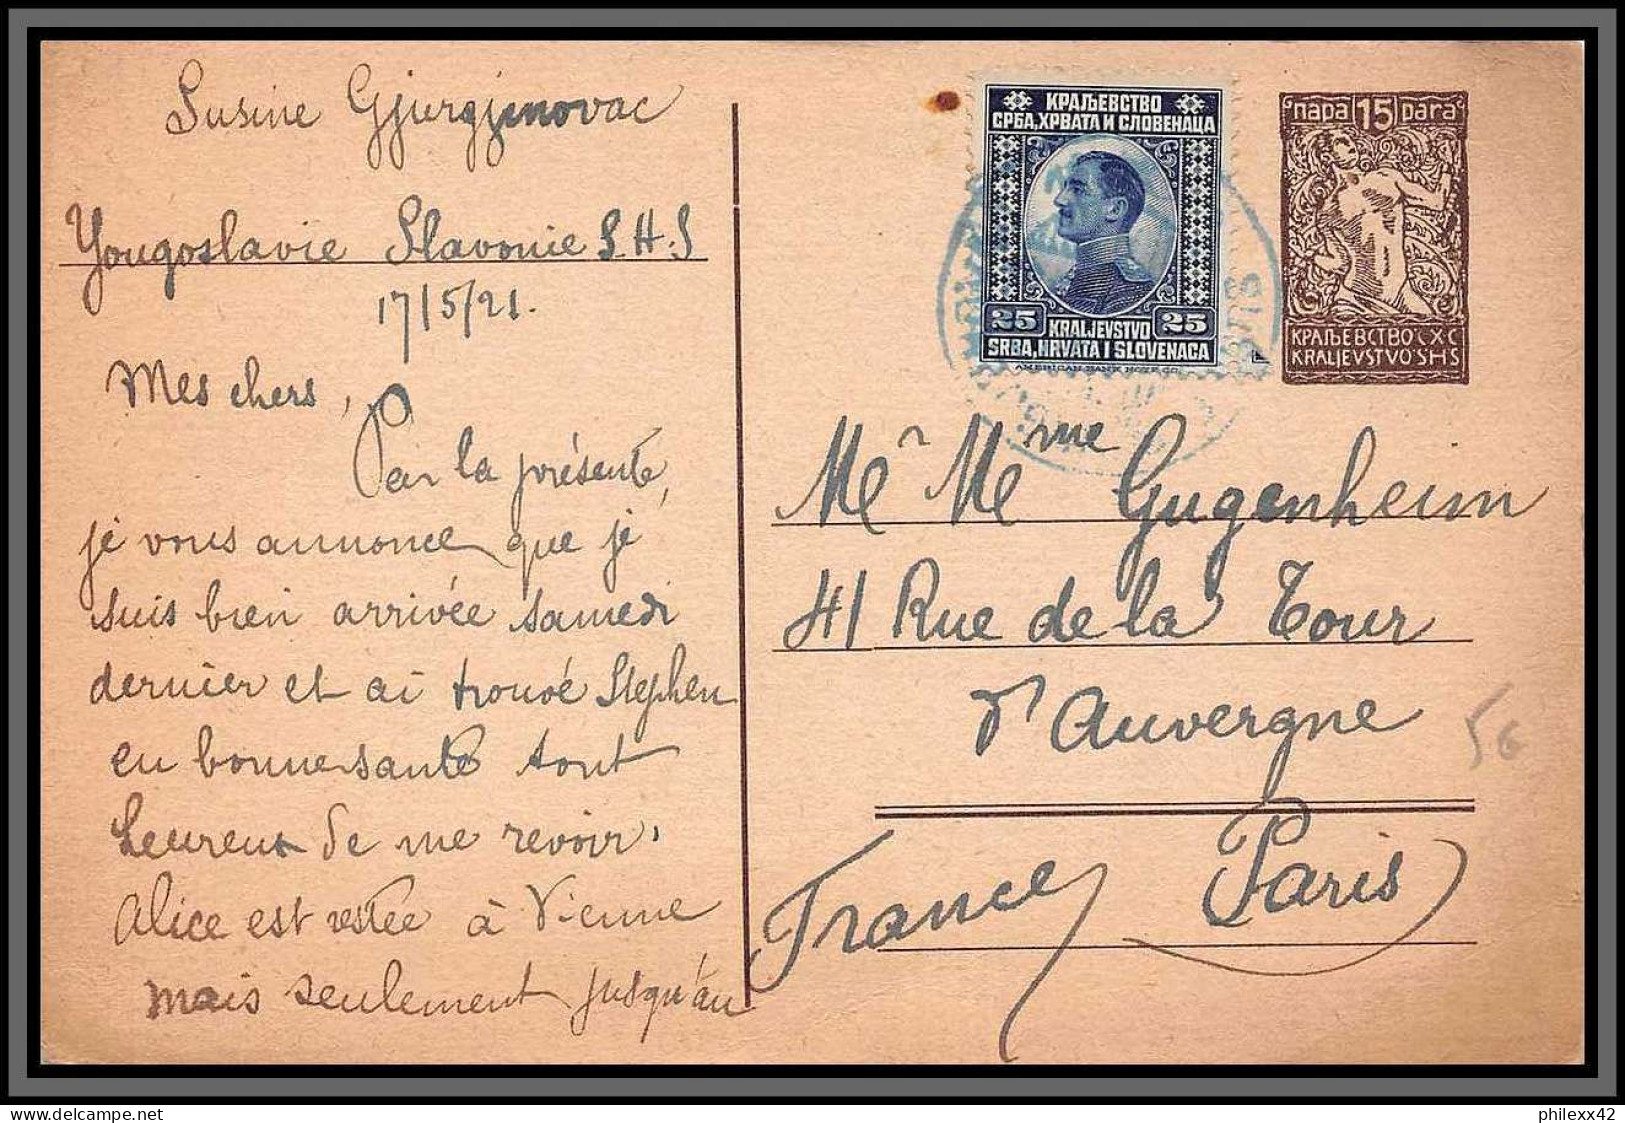 Susine Gjurgjenovac
Yougoslavie Slavonie S.H.S
17/5/21.
Mes chers,
Par la présente,
je vous annonce que je
suis bien arrivée samedi
dernier et ai trouvé Stephen
en bonne santé tout
heureux de me revoir.
Alice est restée à Vienne
mais seulement jusqu'au
КРАЉЕВСТВО
СРБА, ХРВАТА И СЛОВЕНАЦА
25 KRALJEVSTVO 25
SRBA, HRVATA I SLOVENACA
AMERICAN BANK NOTE CO.
пара 15 para
КРАЉЕВСТВО СХС
KRALJEVSTVO SHS
Mr Mme Gugenheim
41 Rue de la Tour
d'Auvergne
Paris
France
philexx42